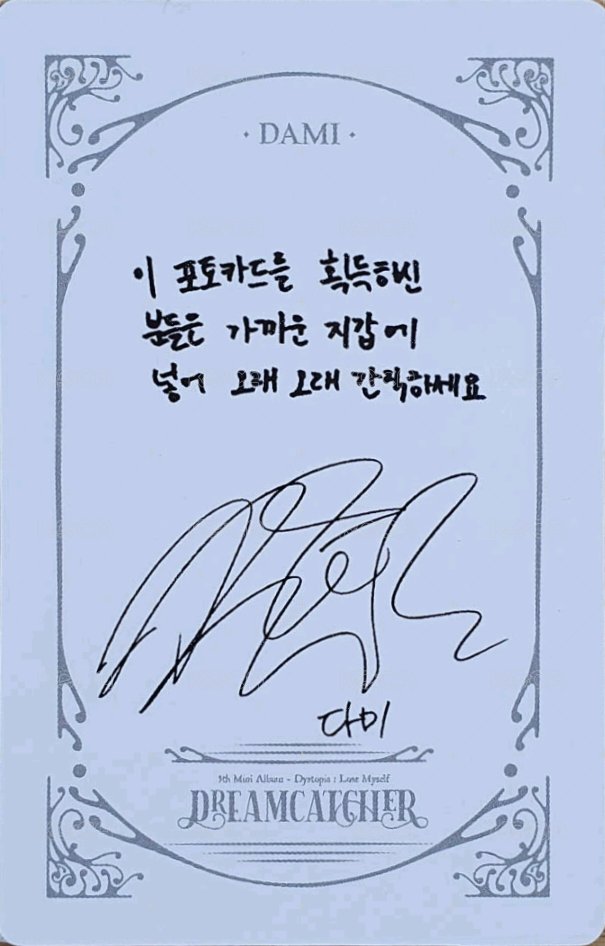 · DAMI ·
이 포토카드를 획득하신
분들은 가까운 지갑에
넣어 오래 오래 간직하세요
다미
5th Mini Album - Dystopia : Lose Myself
DREAMCATCHER